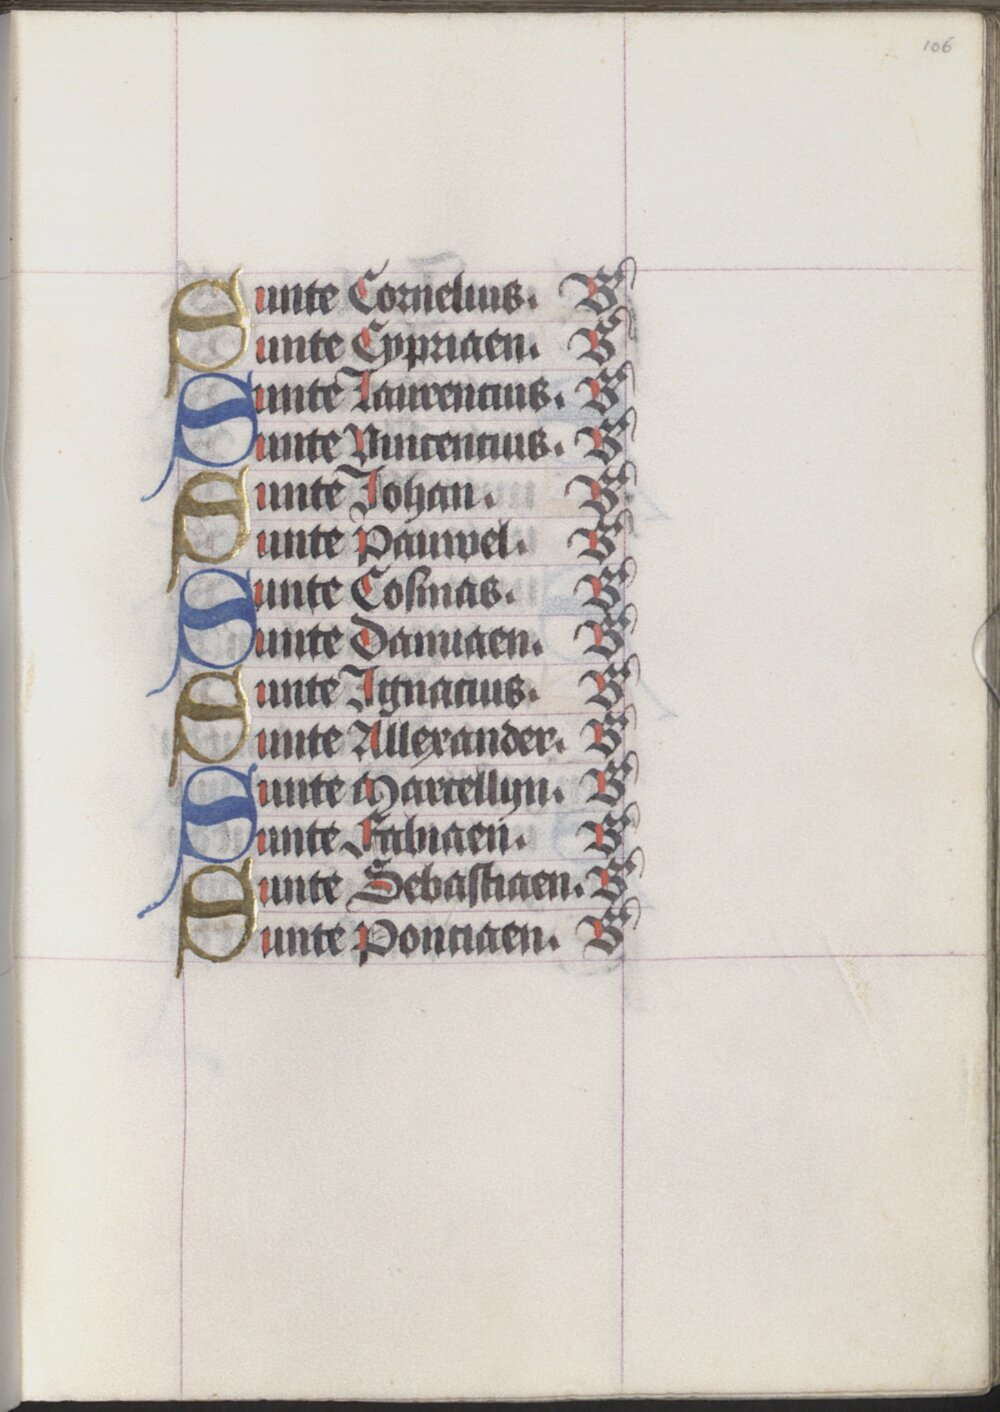 106
Sunte Cornelius. B
Sunte Cypriaen. B
Sunte Laurencius. B
Sunte Vincencius. B
Sunte Johan. B
Sunte Pauwel. B
Sunte Cosmas. B
Sunte Damiaen. B
Sunte Ignacius. B
Sunte Allexander. B
Sunte Marcellyn. B
Sunte Fabiaen. B
Sunte Sebastiaen. B
Sunte Ponciaen. B